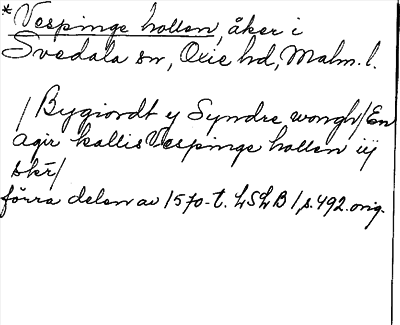 *Vespinge hollen, åker i
Svedala sn, Oxie hd, Malm. l.
/ Bygiordt y Syndre wongh/En
agir kallis Vespinge hollen iij
skr̃/
förra delen av 1570-t. LSLB 1 p. 492. orig.